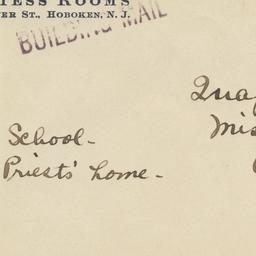 ROOMS
ER ST., HOBOKEN, N. J.
BUILDING MAIL
School-
Priests' home-